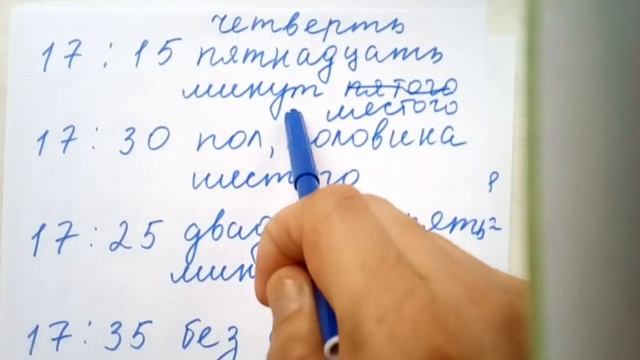 четверть
17 : 15 пятнадцать
минут пятого
шестого
17 : 30 пол, половина
шестого
17 : 25
17 : 35 без